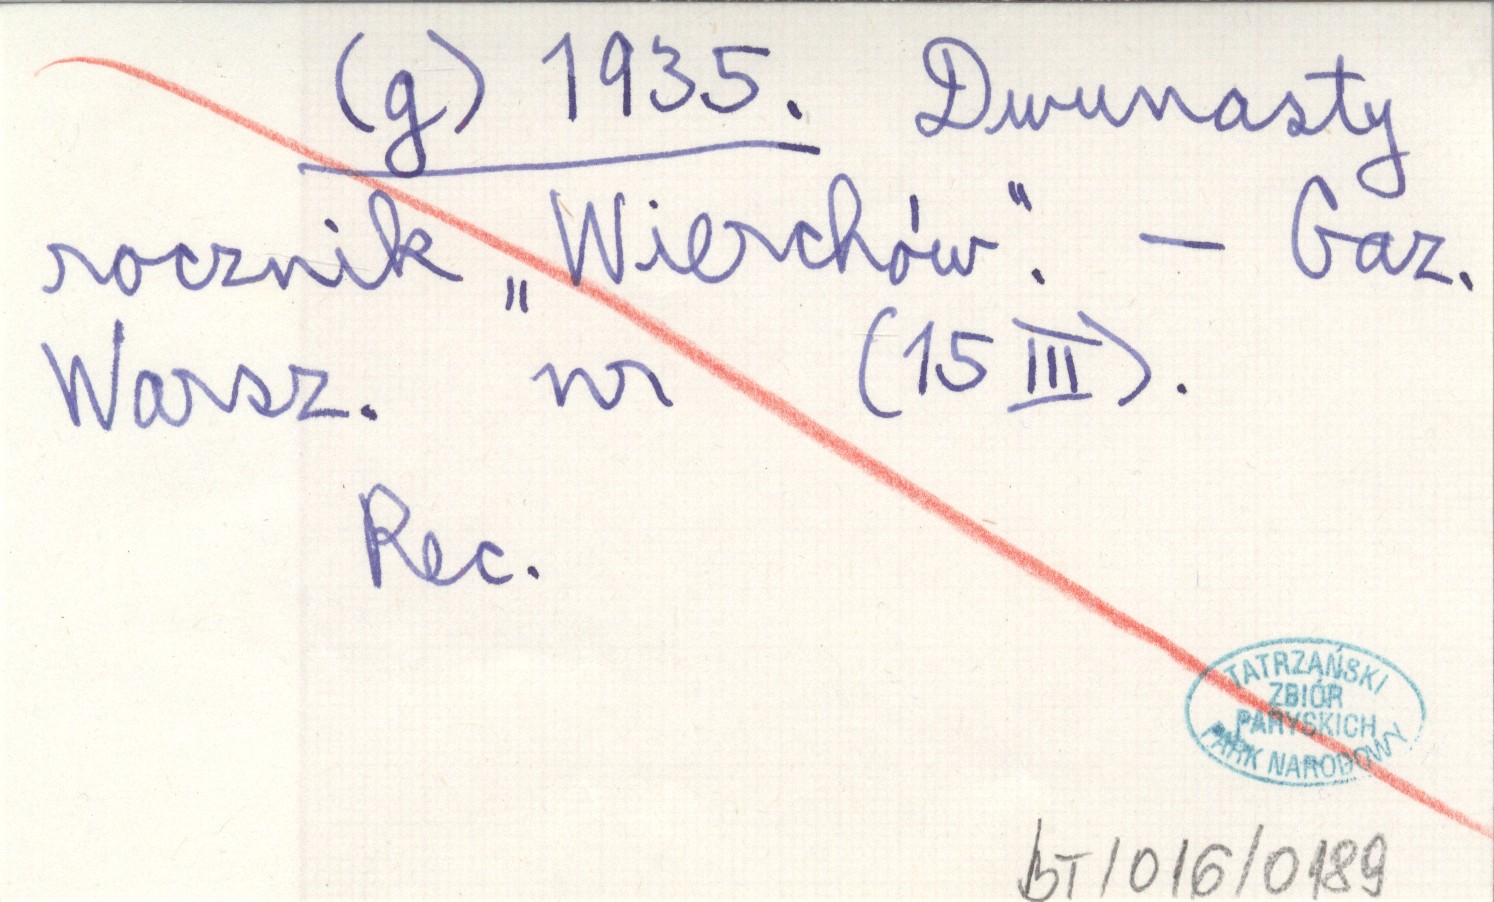 (g) 1935. Dwunasty
rocznik „Wierchów". — Gaz.
Warsz. nr (15 III).
Rec.
TATRZAŃSKI
ZBIÓR
PARYSKICH
PARK NARODOWY
bT/016/0189